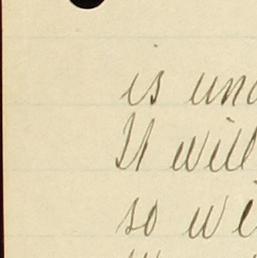 is und
It will
so we